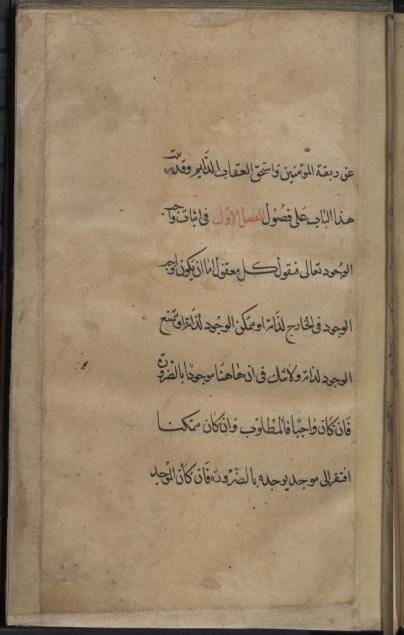 عن ربقة المؤمنين واستحق العقاب الدايم وقد رتبت
هذا الباب على فصول الفصل الاول فى اثبات واجب
الوجود تعالى فنقول كل معقول اما ان يكون واجب
الوجود فى الخارج لذاته او ممكن الوجود لذاته او ممتنع
الوجود لذاته ولا شك فى ان هاهنا موجودا بالضرورة
فان كان واجبا فالمطلوب وان كان ممكنا
افتقر الى موجد يوجده بالضرورة فان كان الموجد